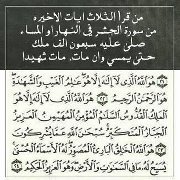 من قرأ الثلاث ايات الاخيره
من سورة الحشر في النهار او المساء
صلى عليه سبعون الف ملك
حتى يمسي وان مات، مات شهيدا
هُوَ اللَّهُ الَّذِي لَا إِلَٰهَ إِلَّا هُوَ عَالِمُ الْغَيْبِ وَالشَّهَادَةِ
هُوَ الرَّحْمَٰنُ الرَّحِيمُ هُوَ اللَّهُ الَّذِي لَا إِلَٰهَ إِلَّا هُوَ
الْمَلِكُ الْقُدُّوسُ السَّلَامُ الْمُؤْمِنُ الْمُهَيْمِنُ الْعَزِيزُ
الْجَبَّارُ الْمُتَكَبِّرُ سُبْحَانَ اللَّهِ عَمَّا يُشْرِكُونَ
هُوَ اللَّهُ الْخَالِقُ الْبَارِئُ الْمُصَوِّرُ لَهُ الْأَسْمَاءُ الْحُسْنَىٰ
يُسَبِّحُ لَهُ مَا فِي السَّمَاوَاتِ وَالْأَرْضِ وَهُوَ الْعَزِيزُ الْحَكِيمُ